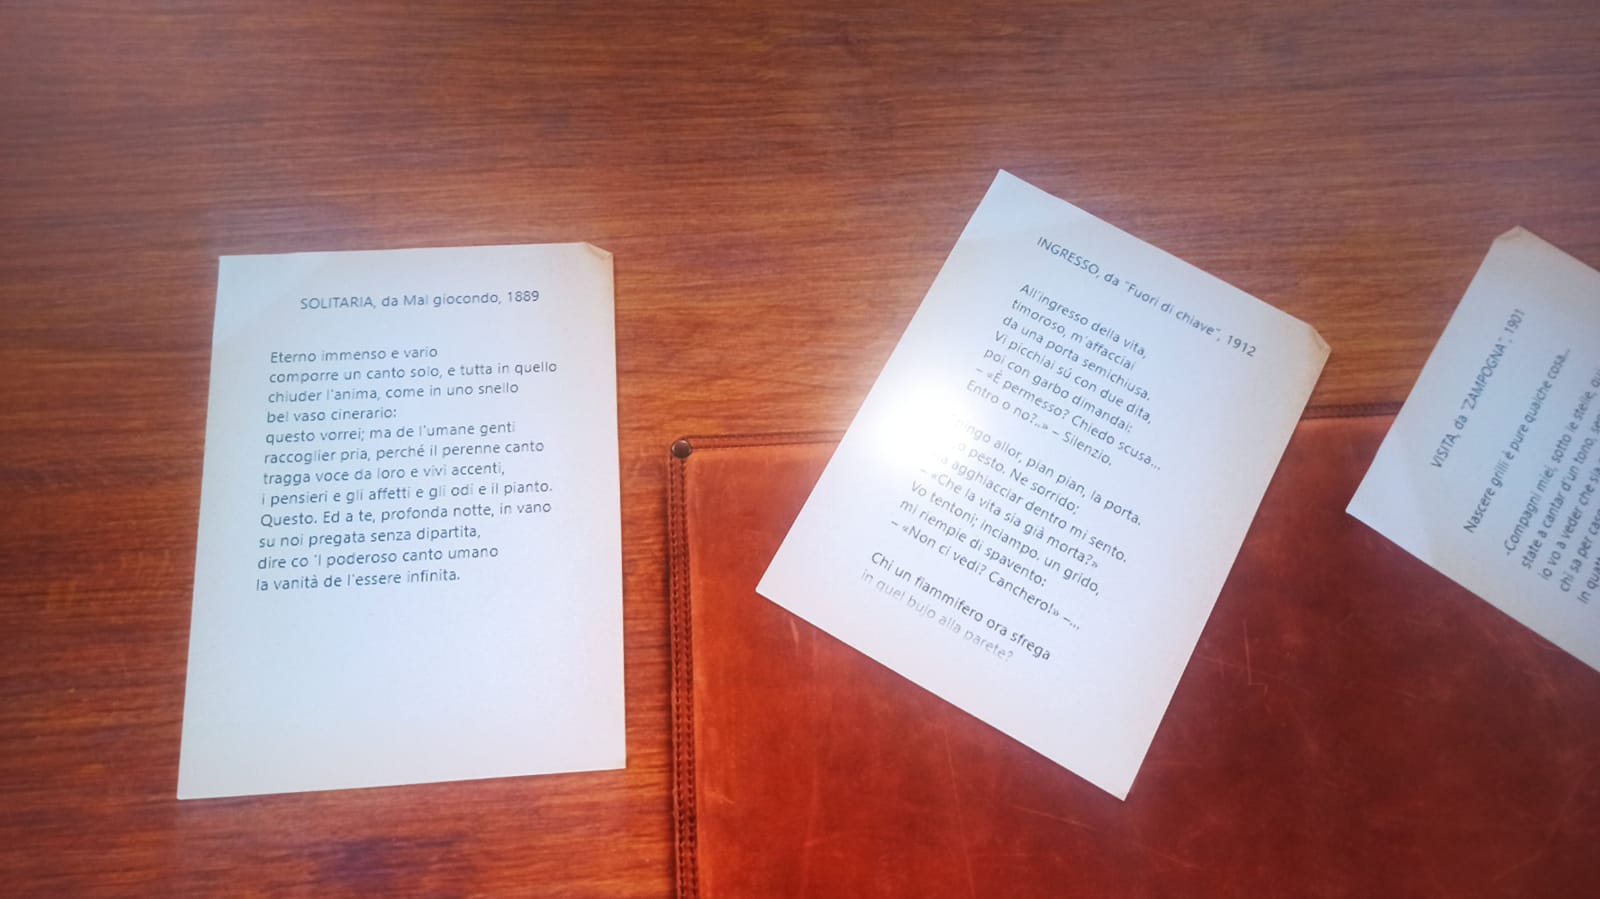 SOLITARIA, da Mal giocondo, 1889
Eterno immenso e vario
comporre un canto solo, e tutta in quello
chiuder l'anima, come in uno snello
bel vaso cinerario:
questo vorrei; ma de l'umane genti
raccoglier pria, perché il perenne canto
tragga voce da loro e vivi accenti,
i pensieri e gli affetti e gli odi e il pianto.
Questo. Ed a te, profonda notte, in vano
su noi pregata senza dipartita,
dire co 'l poderoso canto umano
la vanità de l'essere infinita.
INGRESSO, da "Fuori di chiave", 1912
All'ingresso della vita,
timoroso, m'affacciai
da una porta semichiusa.
Vi picchiai sú con due dita,
poi con garbo dimandai:
– «È permesso? Chiedo scusa...
Entro o no?..» – Silenzio.
allor, pian pian, la porta.
pesto. Ne sorrido;
agghiacciar dentro mi sento.
– «Che la vita sia già morta?»
Vo tentoni; inciampo. un grido,
mi riempie di spavento:
– «Non ci vedi? Canchero!» –...
Chi un fiammifero ora sfrega
in quel bujo alla parete?
VISITA, da "ZAMPOGNA", 1901
Nascere grilli è pure qualche cosa...
-Compagni miei, sotto le stelle,
state a cantar d'un tono,
io vo a veder che sia
chi sa per
In